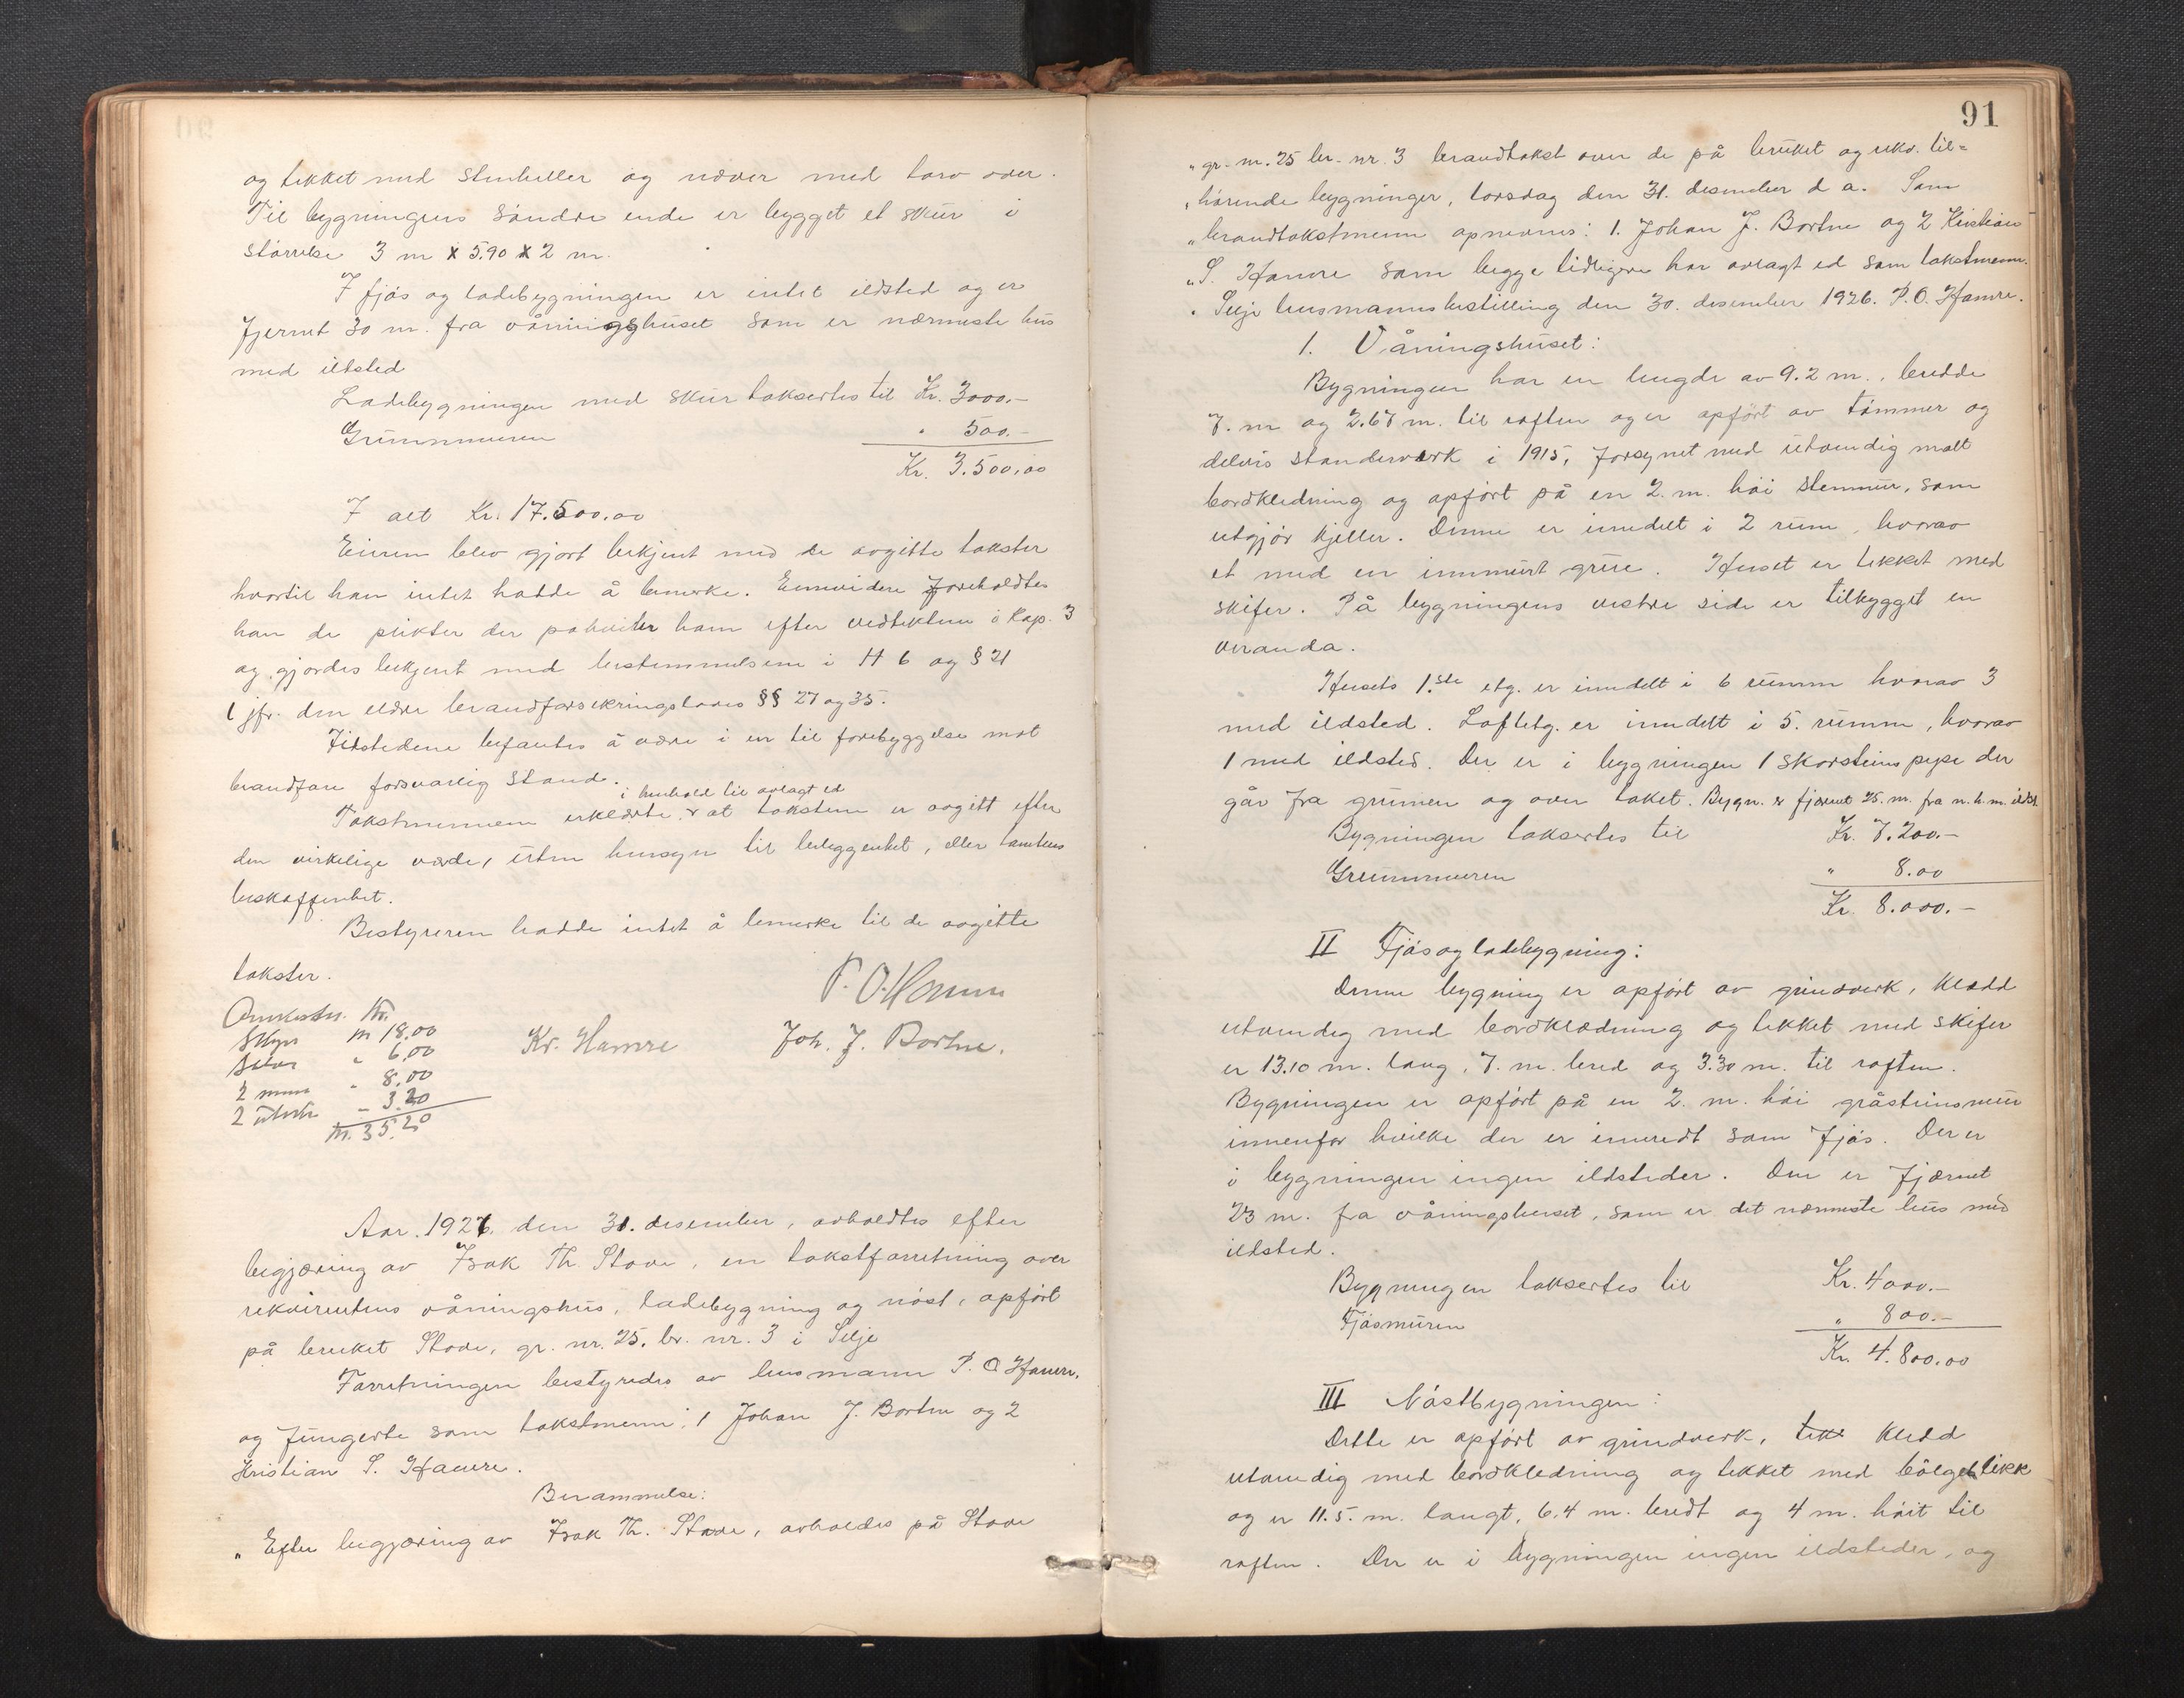 og tekket med stenheller og næver med torv over.
Til bygningens söndre ende er bygget et skur i
störrelse 3 m x 5.90 x 2 m.
I fjös og ladebygningen er intet ildsted og er
fjernet 30 m. fra våningshuset som er nærmeste hus
med ildsted
Ladebygningen med skur taksertes til Kr. 3000.-
Grunnmuren " 500.-
Kr. 3.500,00
I alt Kr. 17.500.00
Eieren blev gjort bekjent med de avgitte takster
hvortil han intet hadde å bemerke. Ennvidere foreholdtes
han de plikter der påhviler ham efter vedtektene i Kap. 3
og gjordes bekjent med bestemmelsene i H 6 og § 21
jfr. den eldre brandforsikringslovs §§ 27 og 35.
Ildstedene befantes å være i en til forebyggelse mot
brandfare forsvarlig stand.
i henhold til avlagt ed
Takstmennene erklærte at taksten er avgitt efter
den virkelige verdi, uten hensyn til beliggenhet, eller tomtens
beskaffenhet.
Bestyreren hadde intet å bemerke til de avgitte
takster.
P. O. Hamre
Omkostn. Kr.
Skyss Kr 18.00
" 6,00
Kr. Hamre Joh. J. Bortne.
2 menn " 8.00
2 utskr. - 3.20
Kr. 35.20
Aar 1926. den 31. desember, avholdtes efter
begjæring av Isak Th. Stove, en takstforretning over
rekvirentens våningshus, ladebygning og nöst, opfört
på bruket Stove, gr. nr. 25, br. nr. 3 i Selje
Forretningen bestyredes av lensmann P. O Hamre,
og fungerte som takstmenn: 1 Johan J. Bortne og 2
Kristian S. Hamre.
Berammelse:
" Efter begjæring av Isak Th. Stove, avholdes på Stove
91
" gr. nr. 25 br. nr. 3 brandtakst over de på bruket og rekv. til=
" hörende bygninger, torsdag den 31. desember d a. Som
" brandtakstmenn opnevnes: 1. Johan J. Bortne og 2 Kristian
" S. Hamre som begge tidligere har avlagt ed som takstmenn.
" Selje lensmannsbestilling den 30. desember 1926. P. O. Hamre.
1. Våningshuset:
Bygningen har en lengde av 9.2 m., bredde
7. m og 2.67 m. til raften og er opfört av tömmer og
delvis standerverk i 1915, forsynet med utvendig malt
bordkledning og opfört på en 2. m. höi stenmur, som
utgjör kjeller. Denne er inndelt i 2 rum, hvorav
et med en innmurt grue. Huset er tekket med
skifer. På bygningens vestre side er tilbygget en
veranda.
Husets 1.ste etg. er inndelt i 6 rumm hvorav 3
med ildsted. Loftetg. er inndelt i 5. rumm, hvorav
1 med ildsted. Der er i bygningen 1 skorsteinspipe der
går fra grunnen og over taket. Bygn. er fjernet 25. m. fra n. h. m. ildst.
Bygningen taksertes til Kr. 7.200.-
Grunnmuren " 8.00
Kr. 8.000.-
II Fjös og ladebygning:
Denne bygning er opfört av grindverk, kledd
utvendig med bordkledning og tekket med skifer
er 13.10 m. lang, 7. m. bred og 3.30 m. til raften.
Bygningen er opfört på en 2. m. höi gråsteinsmur
innenfor hvilke der er innredt som fjös. Der er
i bygningen ingen ildsteder. Den er fjernet
23 m. fra våningshuset, som er det nærmeste hus med
ildsted.
Bygningen taksertes til Kr. 4000.-
Fjösmuren " 800.-
Kr. 4.800.00
III Nöstbygningen:
Dette er opfört av grindverk, tekk kledd
utvendig med bordkledning og tekket med bölgeblikk
og er 11.5. m. langt, 6.4 m. bredt og 4 m. höit til
raften. Der er i bygningen ingen ildsteder, og